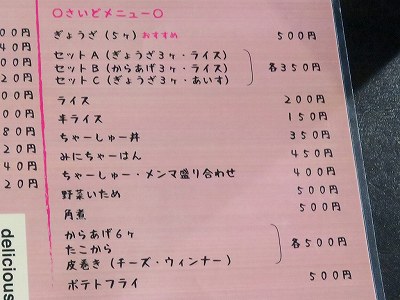 〇さいどメニュー〇
ぎょうざ（5ヶ）おすすめ 500円
セットA（ぎょうざ3ヶ・ライス）
セットB（からあげ3ヶ・ライス） 各350円
セットC（ぎょうざ3ヶ・あいす）
ライス 200円
半ライス 150円
ちゃーしゅー丼 350円
みにちゃーはん 450円
ちゃーしゅー・メンマ盛り合わせ 400円
野菜いため 500円
角煮 500円
からあげ6ヶ
たこから 各500円
皮巻き（チーズ・ウィンナー）
ポテトフライ 500円
00円
40円
00円
20円
00円
00円
80円
20円
40円
20円
delicious